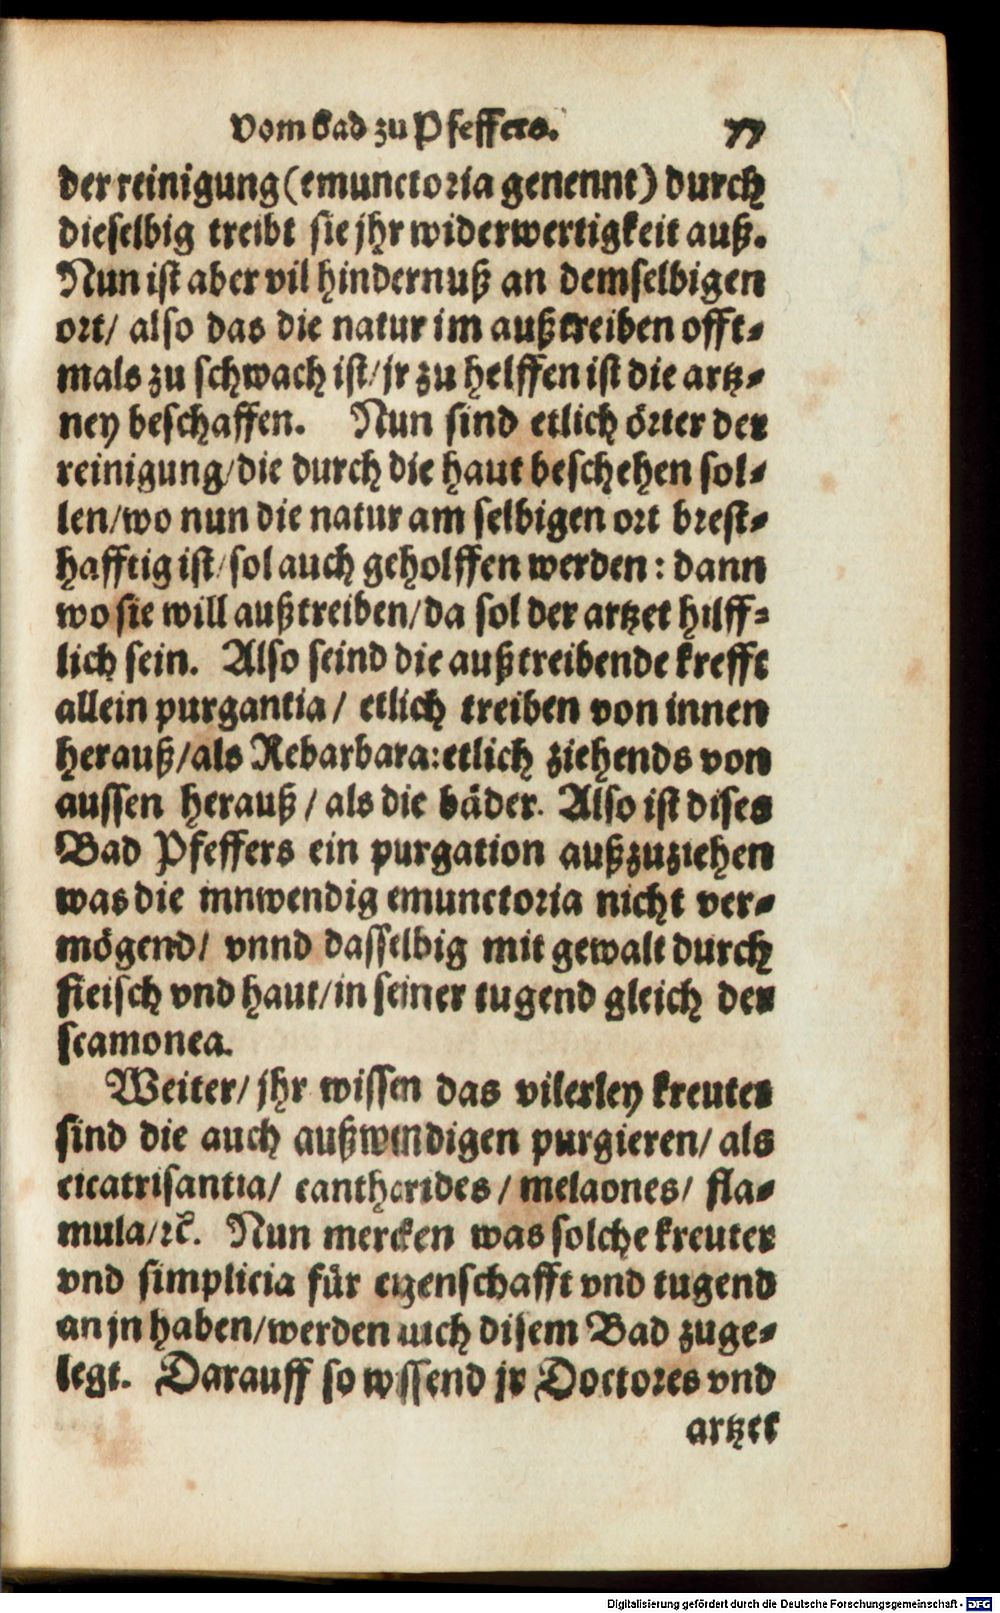 Vom bad zu Pfeffers. 77
der reinigung (emunctoria genennt) durch
dieselbig treibt sie jhr widerwertigkeit auß.
Nun ist aber vil hindernuß an demselbigen
ort/ also das die natur im außtreiben offt-
mals zu schwach ist/ jr zu helffen ist die artz-
ney beschaffen. Nun sind etlich örter der
reinigung/ die durch die haut beschehen sol-
len/ wo nun die natur am selbigen ort brest-
hafftig ist/ sol auch geholffen werden: dann
wo sie will außtreiben/ da sol der artzet hilff-
lich sein. Also seind die außtreibende krefft
allein purgantia/ etlich treiben von innen
herauß/ als Rebarbara: etlich ziehends von
aussen herauß/ als die bäder. Also ist dises
Bad Pfeffers ein purgation außzuziehen
was die innwendig emunctoria nicht ver-
mögend/ vnnd dasselbig mit gewalt durch
fleisch vnd haut/ in seiner tugend gleich der
scamonea.
Weiter/ jhr wissen das vilerley kreuter
sind die auch außwendigen purgieren/ als
cicatrisantia/ cantherides/ melaones/ fla-
mula/ ꝛc. Nun mercken was solche kreuter
vnd simplicia für eigenschafft vnd tugend
an jn haben/ werden auch disem Bad zuge-
legt. Darauff so wissend jr Doctores vnd
artzet
Digitalisierung gefördert durch die Deutsche Forschungsgemeinschaft - DFG